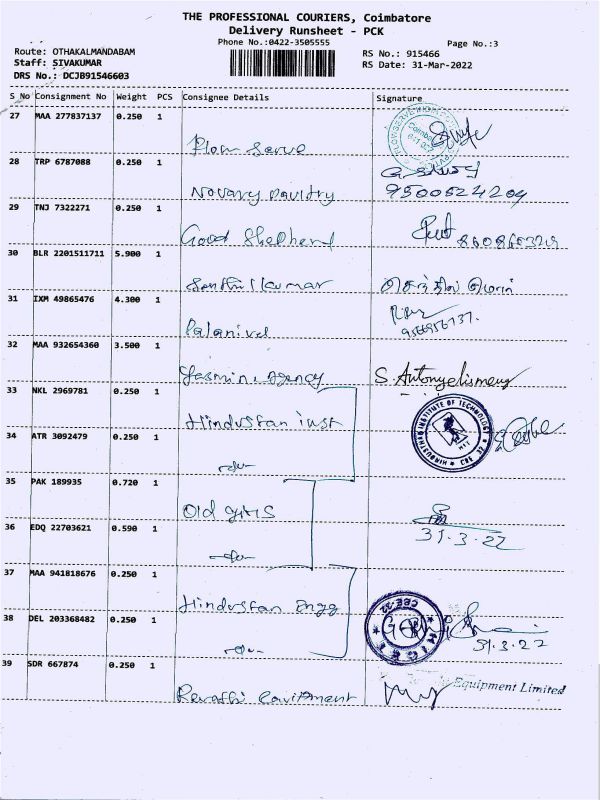 THE PROFESSIONAL COURIERS, Coimbatore
Delivery Runsheet - PCK
Phone No.:0422-3505555
Page No.:3
Route: OTHAKALMANDABAM
Staff: SIVAKUMAR
DRS No.: DCJB91546603
RS No.: 915466
RS Date: 31-Mar-2022
S No Consignment No Weight PCS Consignee Details Signature
27 MAA 277837137 0.250 1
Flow Serve
28 TRP 6787088 0.250 1
Novary Poultry 9500624204
29 TNJ 7322271 0.250 1
Good Shepherd
30 BLR 2201511711 5.900 1
Senthil Kumar செந்தில்
31 IXM 49865476 4.300 1
Palanivel
32 MAA 932654360 3.500 1
Yasmin Agency S. Antony
33 NKL 2969781 0.250 1
Hindustan inst
HINDUSTHAN INSTITUTE OF TECHNOLOGY
34 ATR 3092479 0.250 1
-do-
35 PAK 189935 0.720 1
Old
36 EDQ 22703621 0.590 1
-do- 31.3.22
37 MAA 941818676 0.250 1
Hindustan Engg
38 DEL 203368482 0.250 1
-do- 31.3.22
39 SDR 667874 0.250 1
Equipment Limited
Revathi Equipment